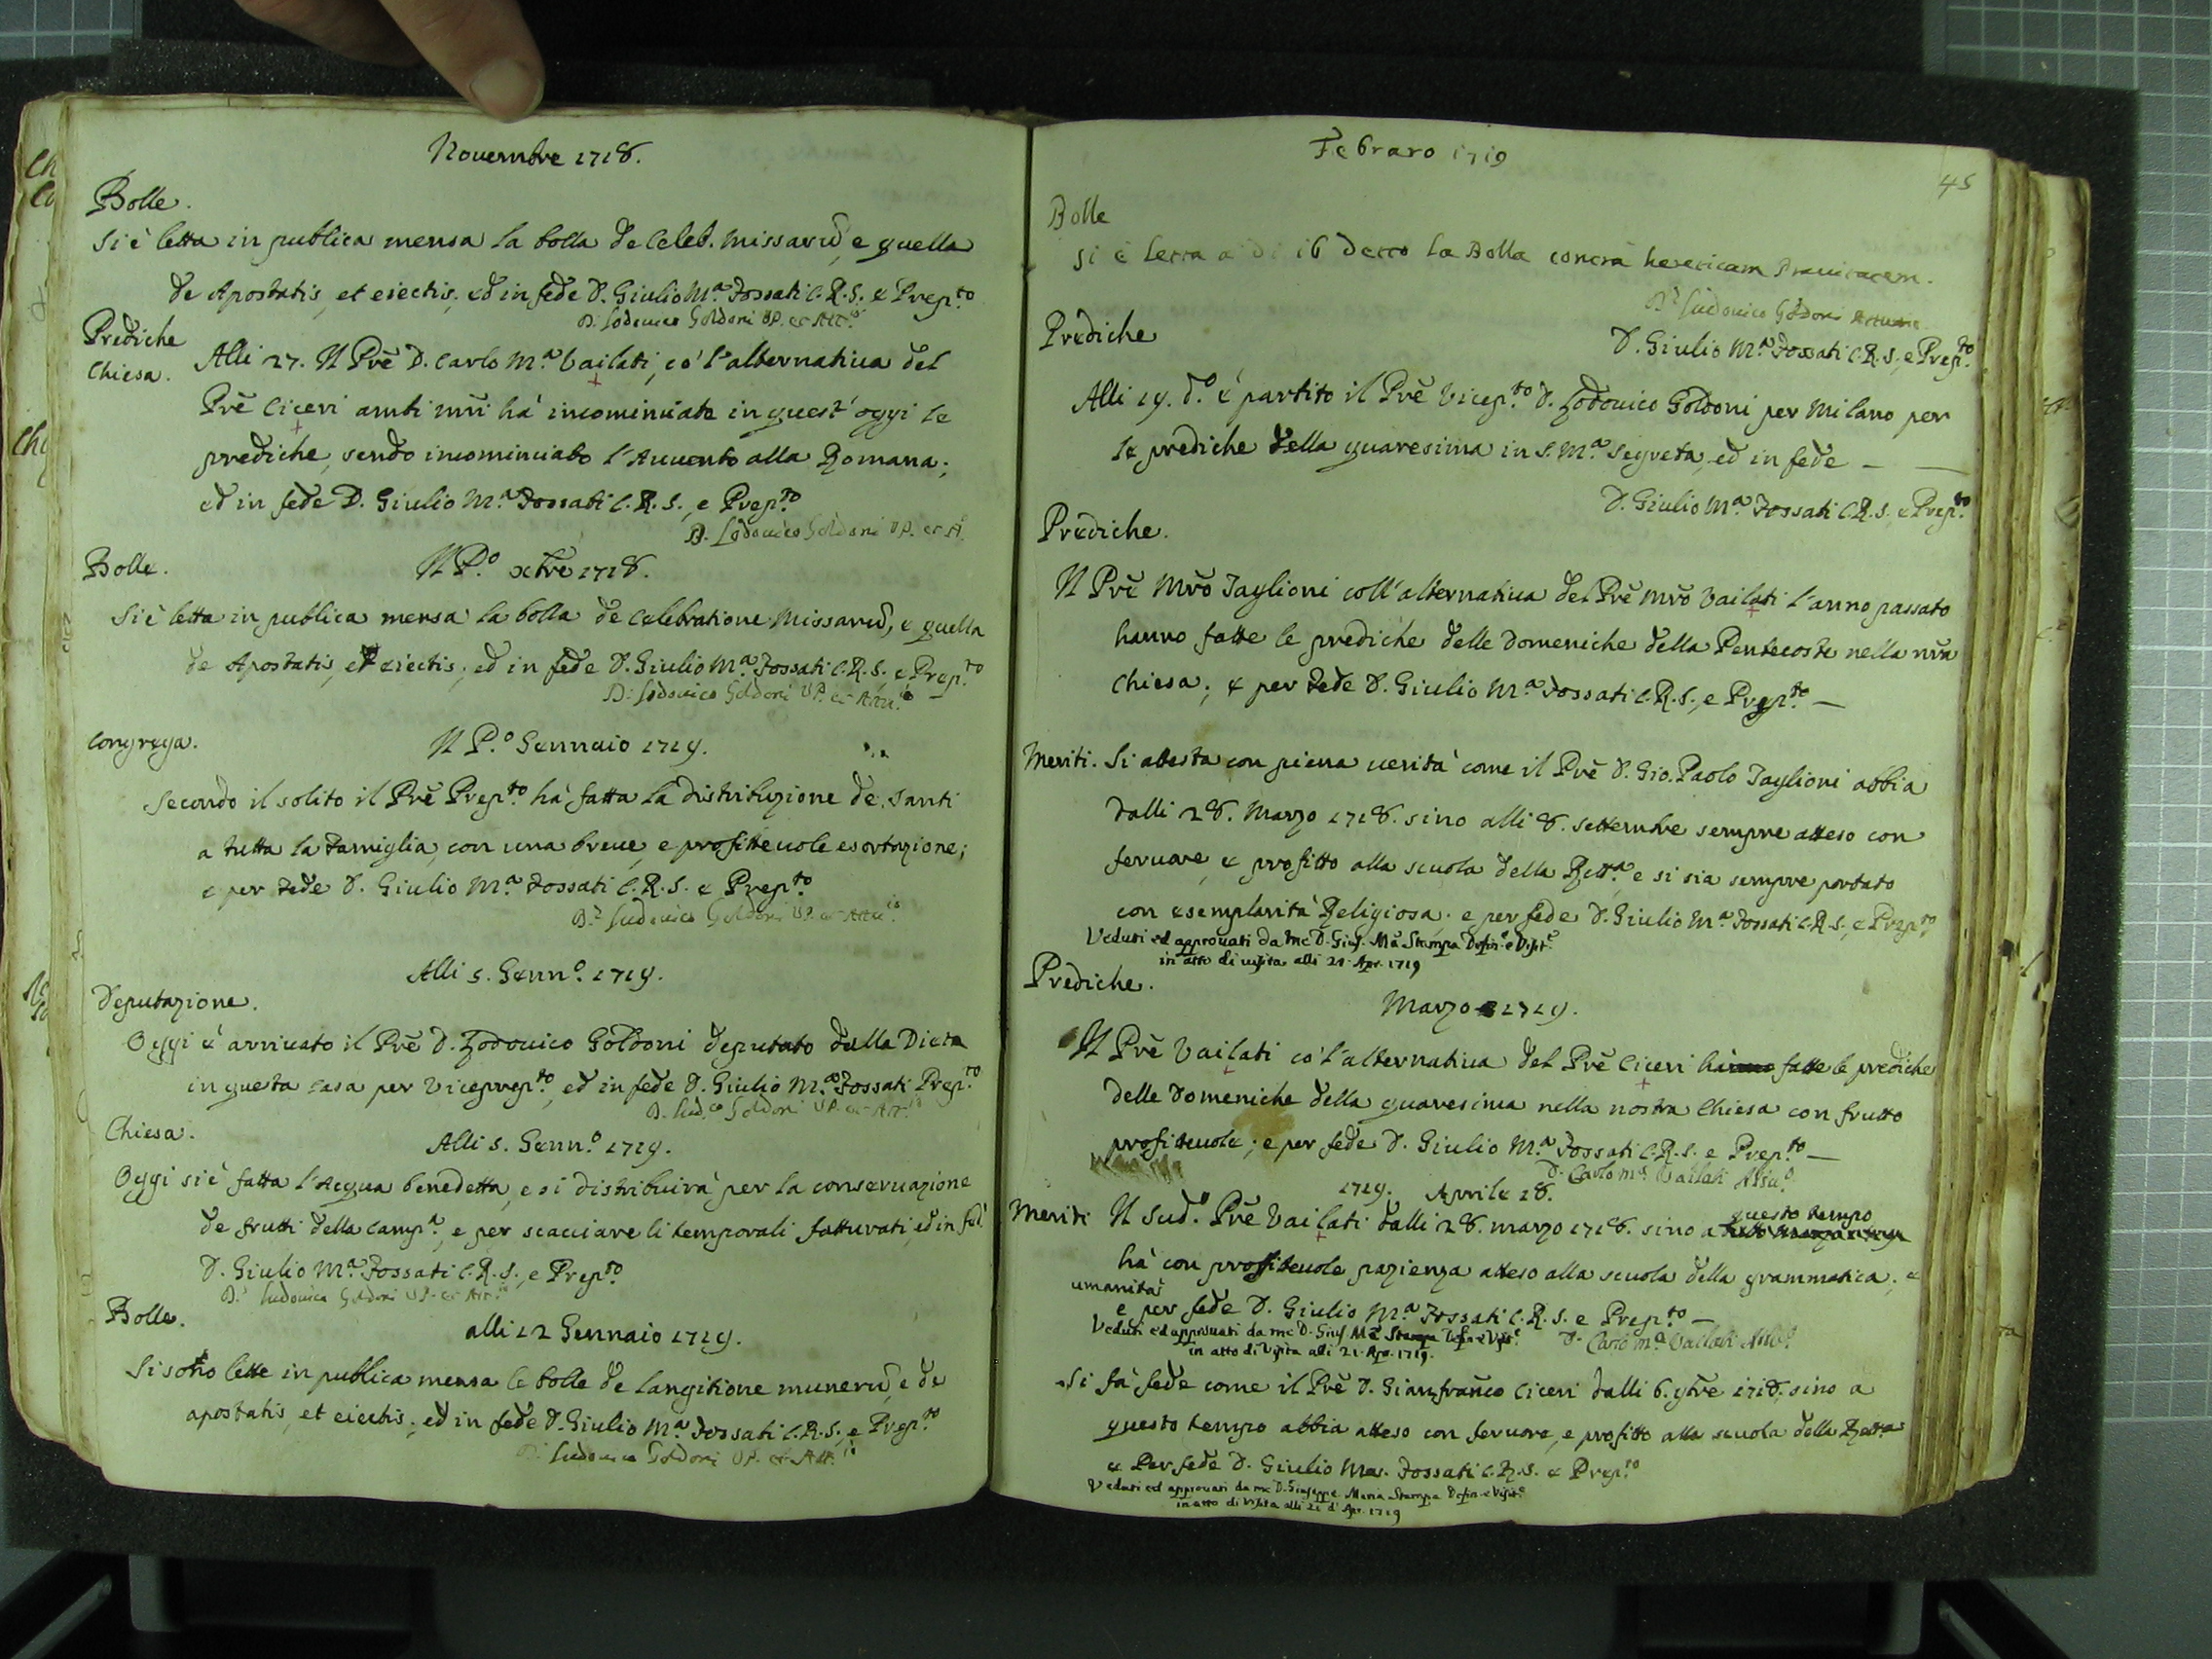 Novembre 1718.
Bolle.
Si è letta in publica mensa la bolla de Celeb. Missarũ, e quella
de Apostatis, et eiectis; ed in fede D. Giulio M.a Fossati C.R.S. e Prep.to
D. Lodovico Goldoni VP. et Att.
Prediche
Chiesa.
Alli 27. Il Prẽ D. Carlo M.a Vailati, co' l'alternativa del
Prẽ Ciceri ambi mrĩ hà incominciato in quest'oggi le
prediche, sendo incominciato l'Avvento alla Romana;
ed in fede D. Giulio M.a Fossati C.R.S., e Prep.to
D. Lodovico Goldoni VP. et A.
Bolle.
Il P.o Xbre 1718.
Si è letta in publica mensa la bolla de Celebratione Missarũ, e quella
de Apostatis, et eiectis; ed in fede D. Giulio M.a Fossati C.R.S., e Prep.to
D. Lodovico Goldoni VP. et Attu.io
Congrega.
Il P.o Gennaio 1719.
Secondo il solito il Prẽ Prep.to hà fatta la distribuzione de' Santi
a tutta la Famiglia, con una breve, e profittevole esortazione;
e per Fede D. Giulio M.a Fossati C.R.S. e Prep.to
D. Ludovico Goldoni VP. et Attu.io
Alli 5. Genn.o 1719.
Deputazione.
Oggi è arrivato il Prẽ D. Lodovico Goldoni deputato dalla Dieta
in questa casa per Viceprep.to, ed in fede D. Giulio M.a Fossati Prep.to
D. Lud.co Goldoni VP. et Att.io
Chiesa.
Alli 5. Genn.o 1719.
Oggi si è fatta l'Acqua benedetta, e si distribuirà per la conservazione
de frutti della Camp.a, e per scacciare li temporali fatturati, ed in fed.
D. Giulio M.a Fossati C.R.S., e Prep.to
D. Ludovico Goldoni VP. et Att.io
Bolle.
alli 12 Gennaio 1719.
Si sono lette in publica mensa le bolle de langitione munerũ, e de
apostatis, et eiectis; ed in fede D. Giulio M.a Fossati C.R.S., e Prep.to
D. Ludovico Goldoni VP. et Att.io
Febraro 1719
45
Bolle
Si è letta a di 16 detto la Bolla contra hereticam Pravitatem.
D. Ludovico Goldoni
D. Giulio M.a Fossati C.R.S., e Prep.to
Prediche
Alli 19. d.o è partito il Prẽ Vicep.to D. Lodovico Goldoni per Milano per
le prediche della quaresima in S. M.a Segreta, ed in fede —
D. Giulio M.a Fossati C.R.S., e Prep.to
Prediche.
Il Prẽ Mrõ Taglioni coll'alternativa del Prẽ Mrõ Vailati l'anno passato
hanno fatte le prediche delle Domeniche della Pentecoste nella nrã
Chiesa; e per Fede D. Giulio M.a Fossati C.R.S., e Prep.to —
Meriti. Si attesta con piena verità come il Prẽ D. Gio. Paolo Taglioni abbia
dalli 28. Marzo 1718. sino alli 8. settembre sempre atteso con
fervore, e profitto alla scuola della Rett.a, e si sia sempre portato
con esemplarità Religiosa; e per fede D. Giulio M.a Fossati C.R.S., e Prep.to
Veduti ed approvati da me D. Gius. M.a Stampa Defin.e e Visit.e
in atto di visita alli 21. Apr. 1719
Prediche.
Marzo 1719.
Il Prẽ Vailati co' l'alternativa del Prẽ Ciceri hà fatte le prediche
delle Domeniche della quaresima nella nostra Chiesa con frutto
profittevole; e per fede D. Giulio M.a Fossati C.R.S. e Prep.to —
D. Carlo M.a Vailati Attu.o
1719. Aprile 18.
Meriti Il Sud.o Prẽ Vailati dalli 28. marzo 1718. sino a questo tempo
hà con profittevole pazienza atteso alla scuola della grammatica; e
umanità
e per fede D. Giulio M.a Fossati C.R.S. e Prep.to —
Veduti ed approvati da me D. Gius. M.a Stampa Defin. e Visit.e
D. Carlo M.a Vailati Attu.o
in atto di Visita alli 21. Apr. 1719.
Si fà fede come il Prẽ D. Gianfranco Ciceri dalli 6. 9bre 1718. sino a
questo tempo abbia atteso con fervore, e profitto alla scuola della Rett.a
e Per fede D. Giulio Mar. Fossati C.R.S. e Prep.to
Veduti ed approvati da me D. Giuseppe Maria Stampa Defin. e Visit.e
in atto di Visita alli 21 d'Apr. 1719